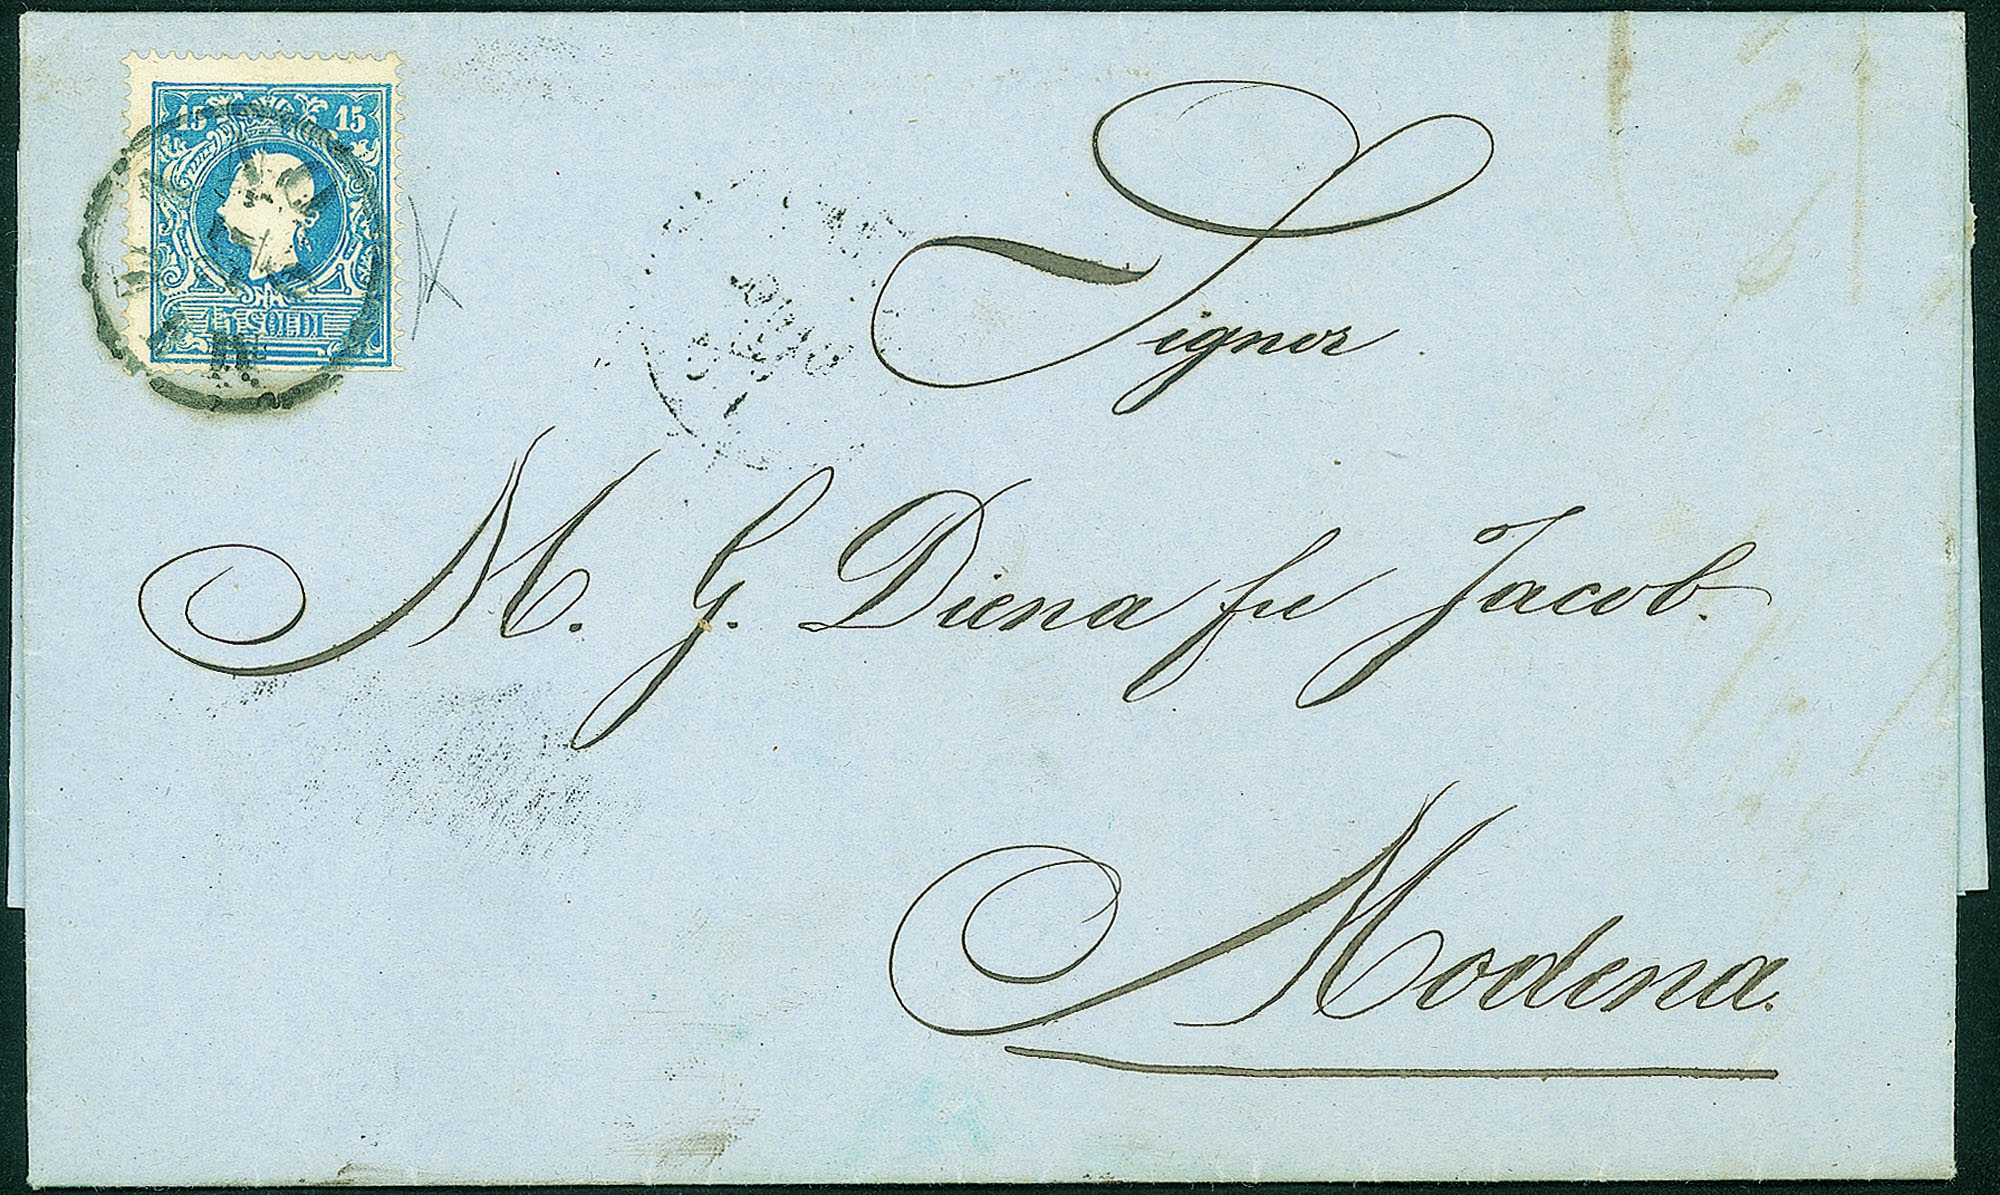 15 15
15 SOLDI
Signor
M. G. Diena fu Jacob.
Modena.